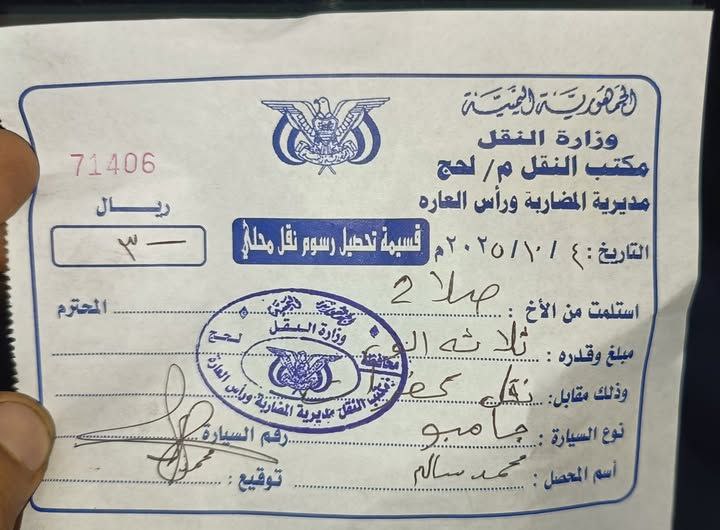 الجمهورية اليمنية
وزارة النقل
مكتب النقل م/ لحج
مديرية المضاربة ورأس العاره
71406
ريال
٣٠٠٠
قسيمة تحصيل رسوم نقل محلي
التاريخ : ٤ / ١٠ / ٢٠٢٥م
استلمت من الأخ : المحترم
مبلغ وقدره : ثلاثه الف
وذلك مقابل : نقل
نوع السيارة : جامبو رقم السيارة
أسم المحصل : محمد سالم توقيع :
الجمهورية اليمنية
وزارة النقل
محافظة لحج
مكتب النقل مديرية المضاربة ورأس العارة